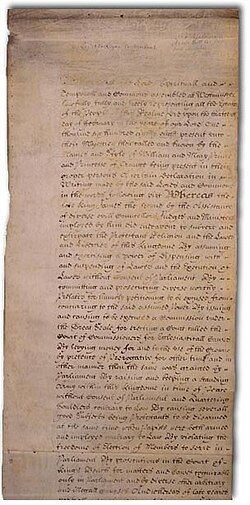 the Lords Spirituall and
Temporall and Commons assembled at Westminster
lawfully fully and freely representing all the Estates
of the People of this Realme did upon the
day of February in the yeare of our Lord One
thousand six hundred eighty eight present unto
their Majesties then called and known by the
Names and Stile of William and Mary Prince
and Princesse of Orange being present in their
proper Persons A certain Declaration in
Writing made by the said Lords and Commons
in the words following viz Whereas the
late King James the Second by the Assistance
of diverse evill Councellors Judges and Ministers
imployed by him did endeavour to subvert and
extirpate the Protestant Religion and the Lawes
and Liberties of this Kingdome By assuming
and exercising a Power of dispensing with
and suspending of Lawes and the Execution of
Lawes without Consent of Parlyament By
committing and prosecuting diverse worthy
Prelates for humbly petitioning to be excused from
concurring to the said assumed Power By issuing
and causing to be executed a Commission under
the Great Seale for erecting a Court called the
Court of Commissioners for Ecclesiasticall Causes
By levying money for and to the use of the Crowne
by pretence of Prerogative for other time and in
other manner then the same was granted by
Parlyament By raising and keeping a standing
Army within this Kingdome in time of Peace
without Consent of Parlyament and Quartering
Souldiers contrary to Law By causing severall
good Subjects being Protestants to be disarmed
at the same time when Papists were both armed
and imployed contrary to Law By violating the
Freedome of Election of Members to serve in
Parlyament By prosecutions in the Court of
Kings Bench for matters and causes cognizable
only in Parlyament and by diverse other arbitrary
and illegall courses And whereas of late yeares